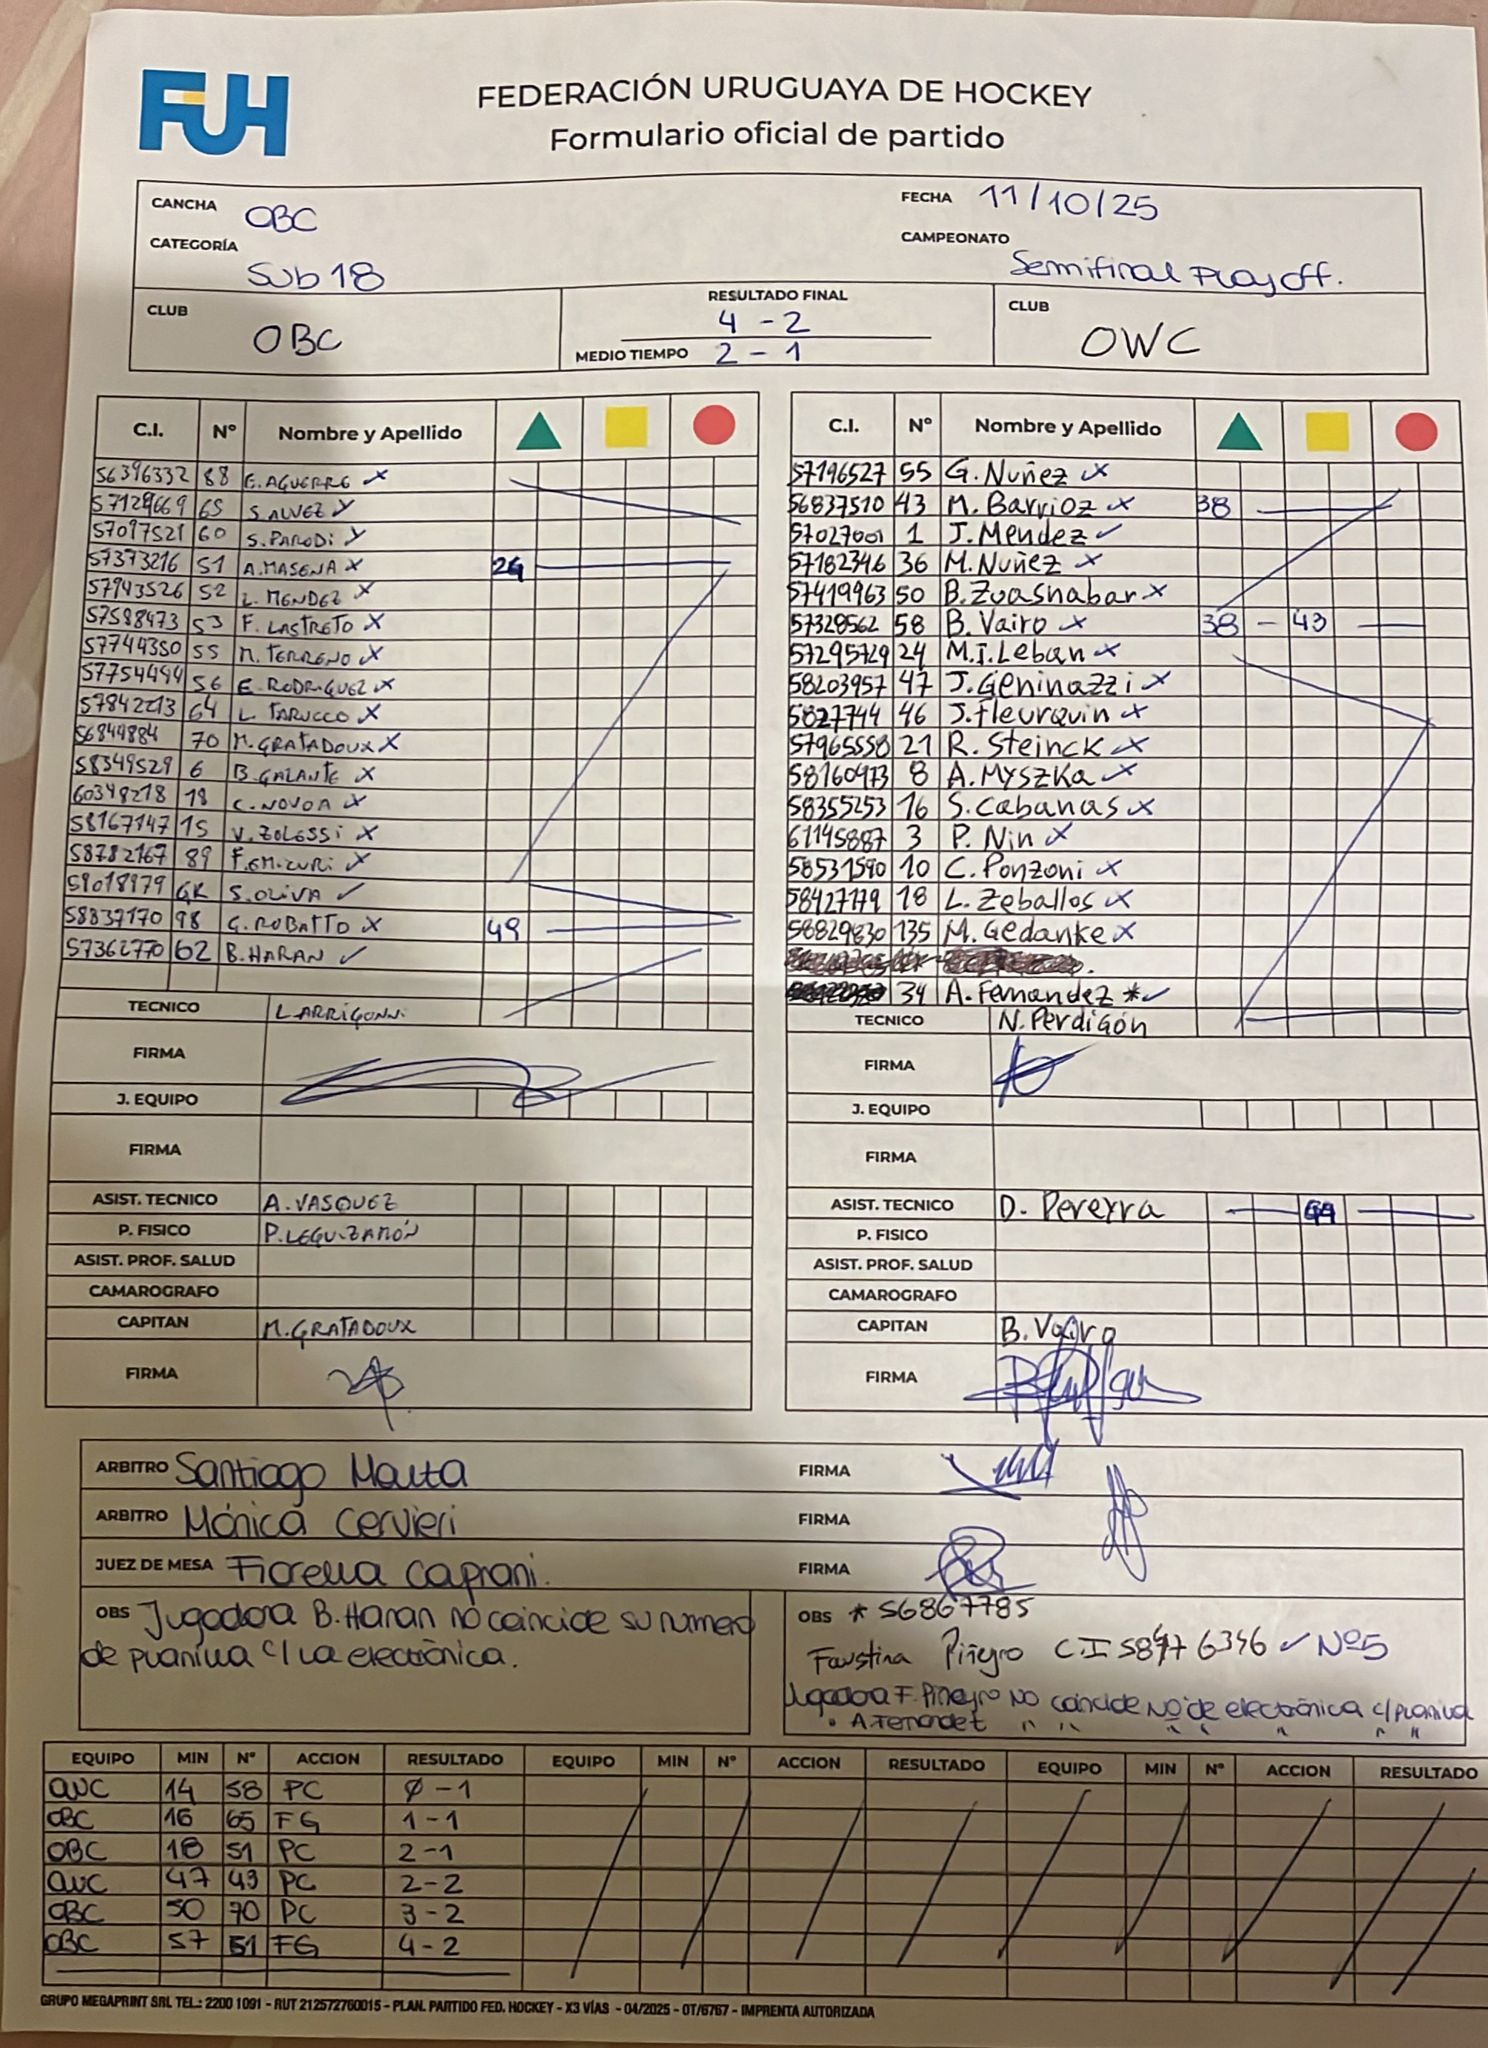 FUH
FEDERACIÓN URUGUAYA DE HOCKEY
Formulario oficial de partido
CANCHA OBC
FECHA 11/10/25
CATEGORÍA Sub 18
CAMPEONATO Semifinal Playoff.
CLUB OBC
RESULTADO FINAL 4 - 2
MEDIO TIEMPO 2 - 1
CLUB OWC
C.I. Nº Nombre y Apellido
56396332 88 E. AGUERRE x
57129669 65 S. ALVEZ x
57097521 60 S. PARODI x
57373216 51 A. MASENA x 24
57943526 52 L. MENDEZ x
57588473 53 F. LASTRETO x
57744350 55 M. TERRENO x
57754494 56 E. RODRIGUEZ x
57842213 64 L. TARUCCO x
56849884 70 M. GRATADOUX x
58349529 6 B. GALANTE x
60348218 18 C. NOVOA x
58167147 15 V. ZOLESSI x
58782167 89 x
58018979 GK S. OLIVA ✓
58837170 98 G. ROBATTO x 49
57362770 62 B. HARAN ✓
TECNICO L. ARRIGONNI
FIRMA
J. EQUIPO
FIRMA
ASIST. TECNICO A. VASQUEZ
P. FISICO P. LEGUIZAMÓN
ASIST. PROF. SALUD
CAMAROGRAFO
CAPITAN M. GRATADOUX
FIRMA
C.I. Nº Nombre y Apellido
57196527 55 G. Nuñez x
56837510 43 M. Barrioz x 38
57027001 1 J. Mendez ✓
57182346 36 M. Nuñez x
57419963 50 B. Zuasnabar x
57328562 58 B. Vairo x 38 - 43
57295729 24 M.J. Leban x
58203957 47 J. Geninazzi x
5827744 46 J. Fleurquin x
57965558 21 R. Steinck x
58160973 8 A. Myszka x
58355253 16 S. Cabanas x
61145887 3 P. Nin x
58531590 10 C. Ponzoni x
58427179 18 L. Zeballos x
58829830 135 M. Gedanke x
34 A. Fernandez * ✓
TECNICO N. Perdigón
FIRMA
J. EQUIPO
FIRMA
ASIST. TECNICO D. Pereyra
P. FISICO
ASIST. PROF. SALUD
CAMAROGRAFO
CAPITAN B. Vairo
FIRMA
ARBITRO Santiago Mauta FIRMA
ARBITRO Mónica Cervieri FIRMA
JUEZ DE MESA Fiorella Caprani. FIRMA
OBS Jugadora B. Haran no coincide su numero
de planilla c/ la electrónica.
OBS * 56867785
Faustina Piñeyro C.I 6346 ✓ Nº5
Jugadora F. Piñeyro no coincide Nº de electrónica c/planilla
• A. Fernandez " " " " " " "
EQUIPO MIN Nº ACCION RESULTADO EQUIPO MIN Nº ACCION RESULTADO EQUIPO MIN Nº ACCION RESULTADO
OWC 14 58 PC 0 - 1
OBC 16 65 FG 1 - 1
OBC 18 51 PC 2 - 1
OWC 47 43 PC 2 - 2
OBC 50 70 PC 3 - 2
OBC 57 51 FG 4 - 2
GRUPO MEGAPRINT SRL TEL.: 2200 1091 - RUT 212572760015 - PLAN. PARTIDO FED. HOCKEY - X3 VÍAS - 04/2025 - OT/6767 - IMPRENTA AUTORIZADA